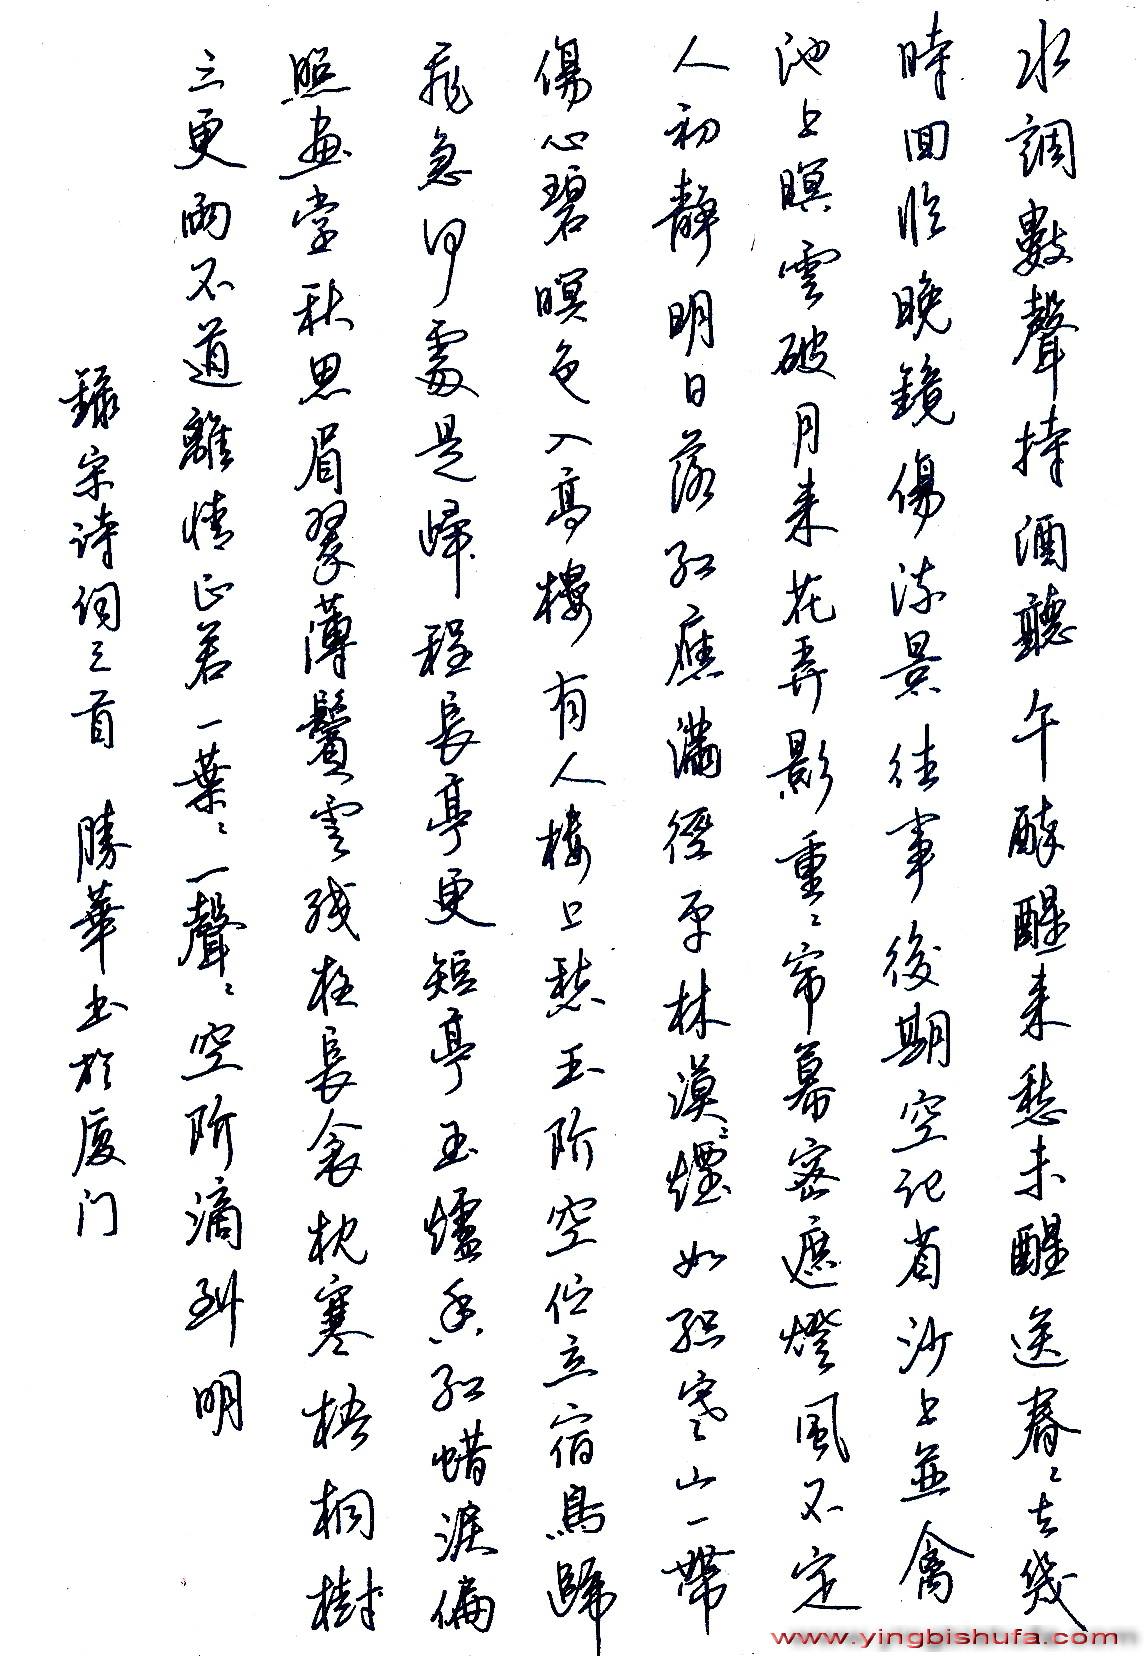 水調數聲持酒聽午醉醒来愁未醒送春〻去幾
時回临晚鏡傷流景往事後期空记省沙上並禽
池上暝雲破月来花弄影重〻帘幕密遮燈風不定
人初靜明日落红應滿徑平林漠〻煙如织寒山一帶
傷心碧暝色入高樓有人樓上愁玉阶空伫立宿鳥歸
飛急何處是歸程長亭更短亭玉爐香红蜡淚偏
照画堂秋思眉翠薄鬢雲残夜長衾枕寒梧桐樹
三更雨不道離情正苦一葉〻一聲〻空阶滴到明
録宋诗词三首 勝華书於厦门
www.yingbishufa.com